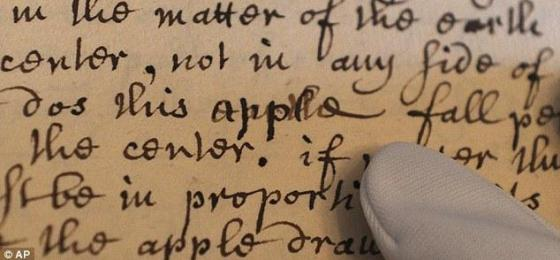 in the matter of the earth
center, not in any side of
dos this apple fall pe
the center. if thu
st be in proporti
the apple draw
© AP